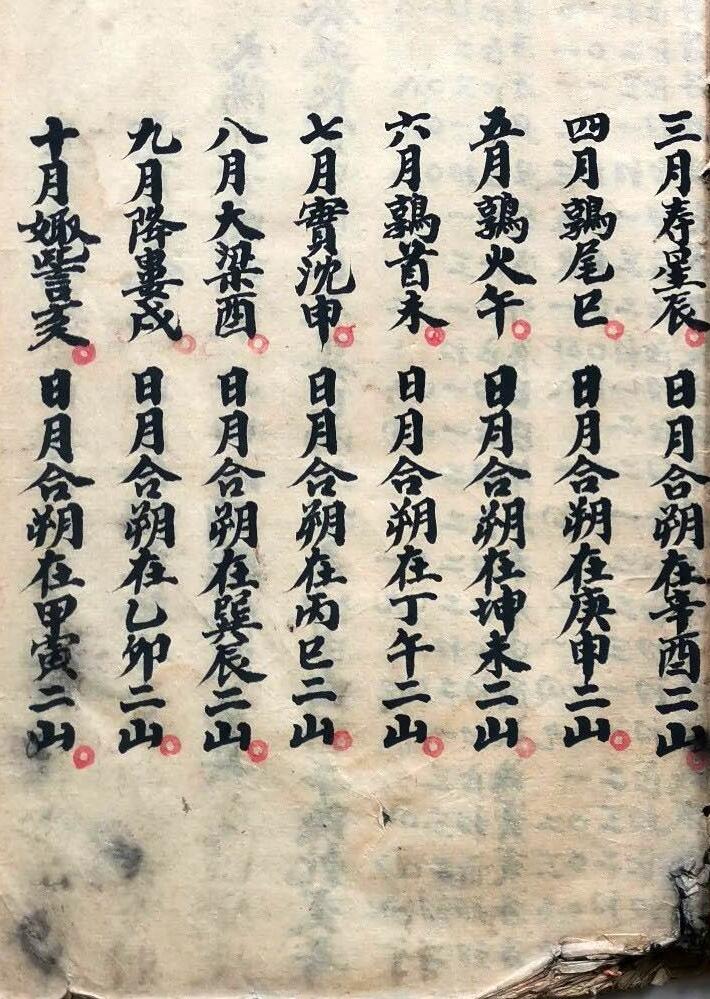 三月寿星辰 日月合朔在辛酉二山
四月鶉尾巳 日月合朔在庚申二山
五月鶉火午 日月合朔在坤未二山
六月鶉首未 日月合朔在丁午二山
七月實沈申 日月合朔在丙巳二山
八月大梁酉 日月合朔在巽辰二山
九月降婁戌 日月合朔在乙卯二山
十月娵訾亥 日月合朔在甲寅二山